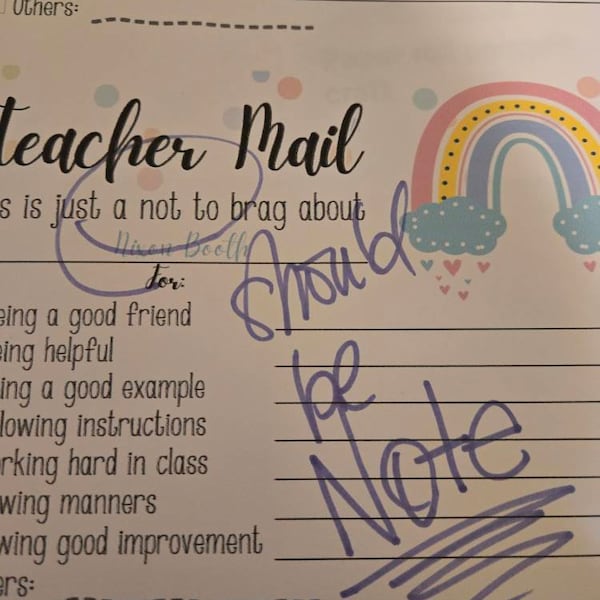 Others:
teacher Mail
s is just a not to brag about
Nixon Booth
for:
eing a good friend
ing helpful
ing a good example
lowing instructions
rking hard in class
wing manners
wing good improvement
ers:
should
be
Note